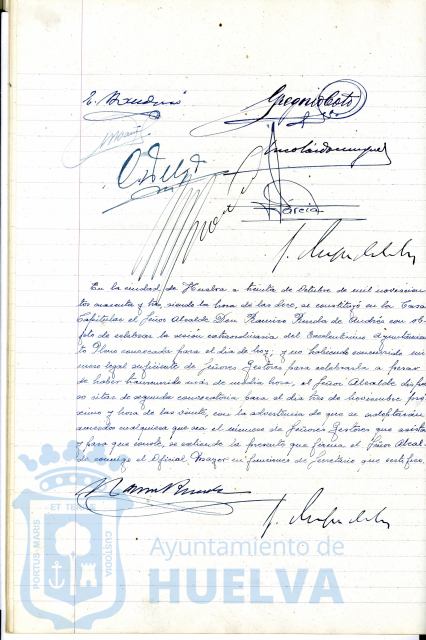 Gregorio Coto
García
En la ciudad de Huelva a treinta de Octubre de mil novecien
tos cuarenta y tres, siendo la hora de las doce, se constituyó en la Casa
Capitular el Señor Alcalde Don Ramiro Rueda de Andrés con ob-
jeto de celebrar la sesión extraordinaria del Excelentísimo Ayuntamien
to Pleno convocada para el día de hoy, y no habiendo concurrido nú
mero legal suficiente de Señores Gestores para celebrarla a pesar
de haber transcurrido más de media hora, el Señor Alcalde dispu
so citar de segunda convocatoria para el día tres de noviembre pró
ximo y hora de las veinte, con la advertencia de que se adoptarán
acuerdo cualquiera que sea el número de Señores Gestores que asista
y para que conste, se extiende la presente que firma el Señor Alcal
de conmigo el Oficial Mayor en funciones de Secretario que certifico.
Ramiro Rueda
PORTUS MARIS
ET TERRE
CUSTODIA
Ayuntamiento de
HUELVA